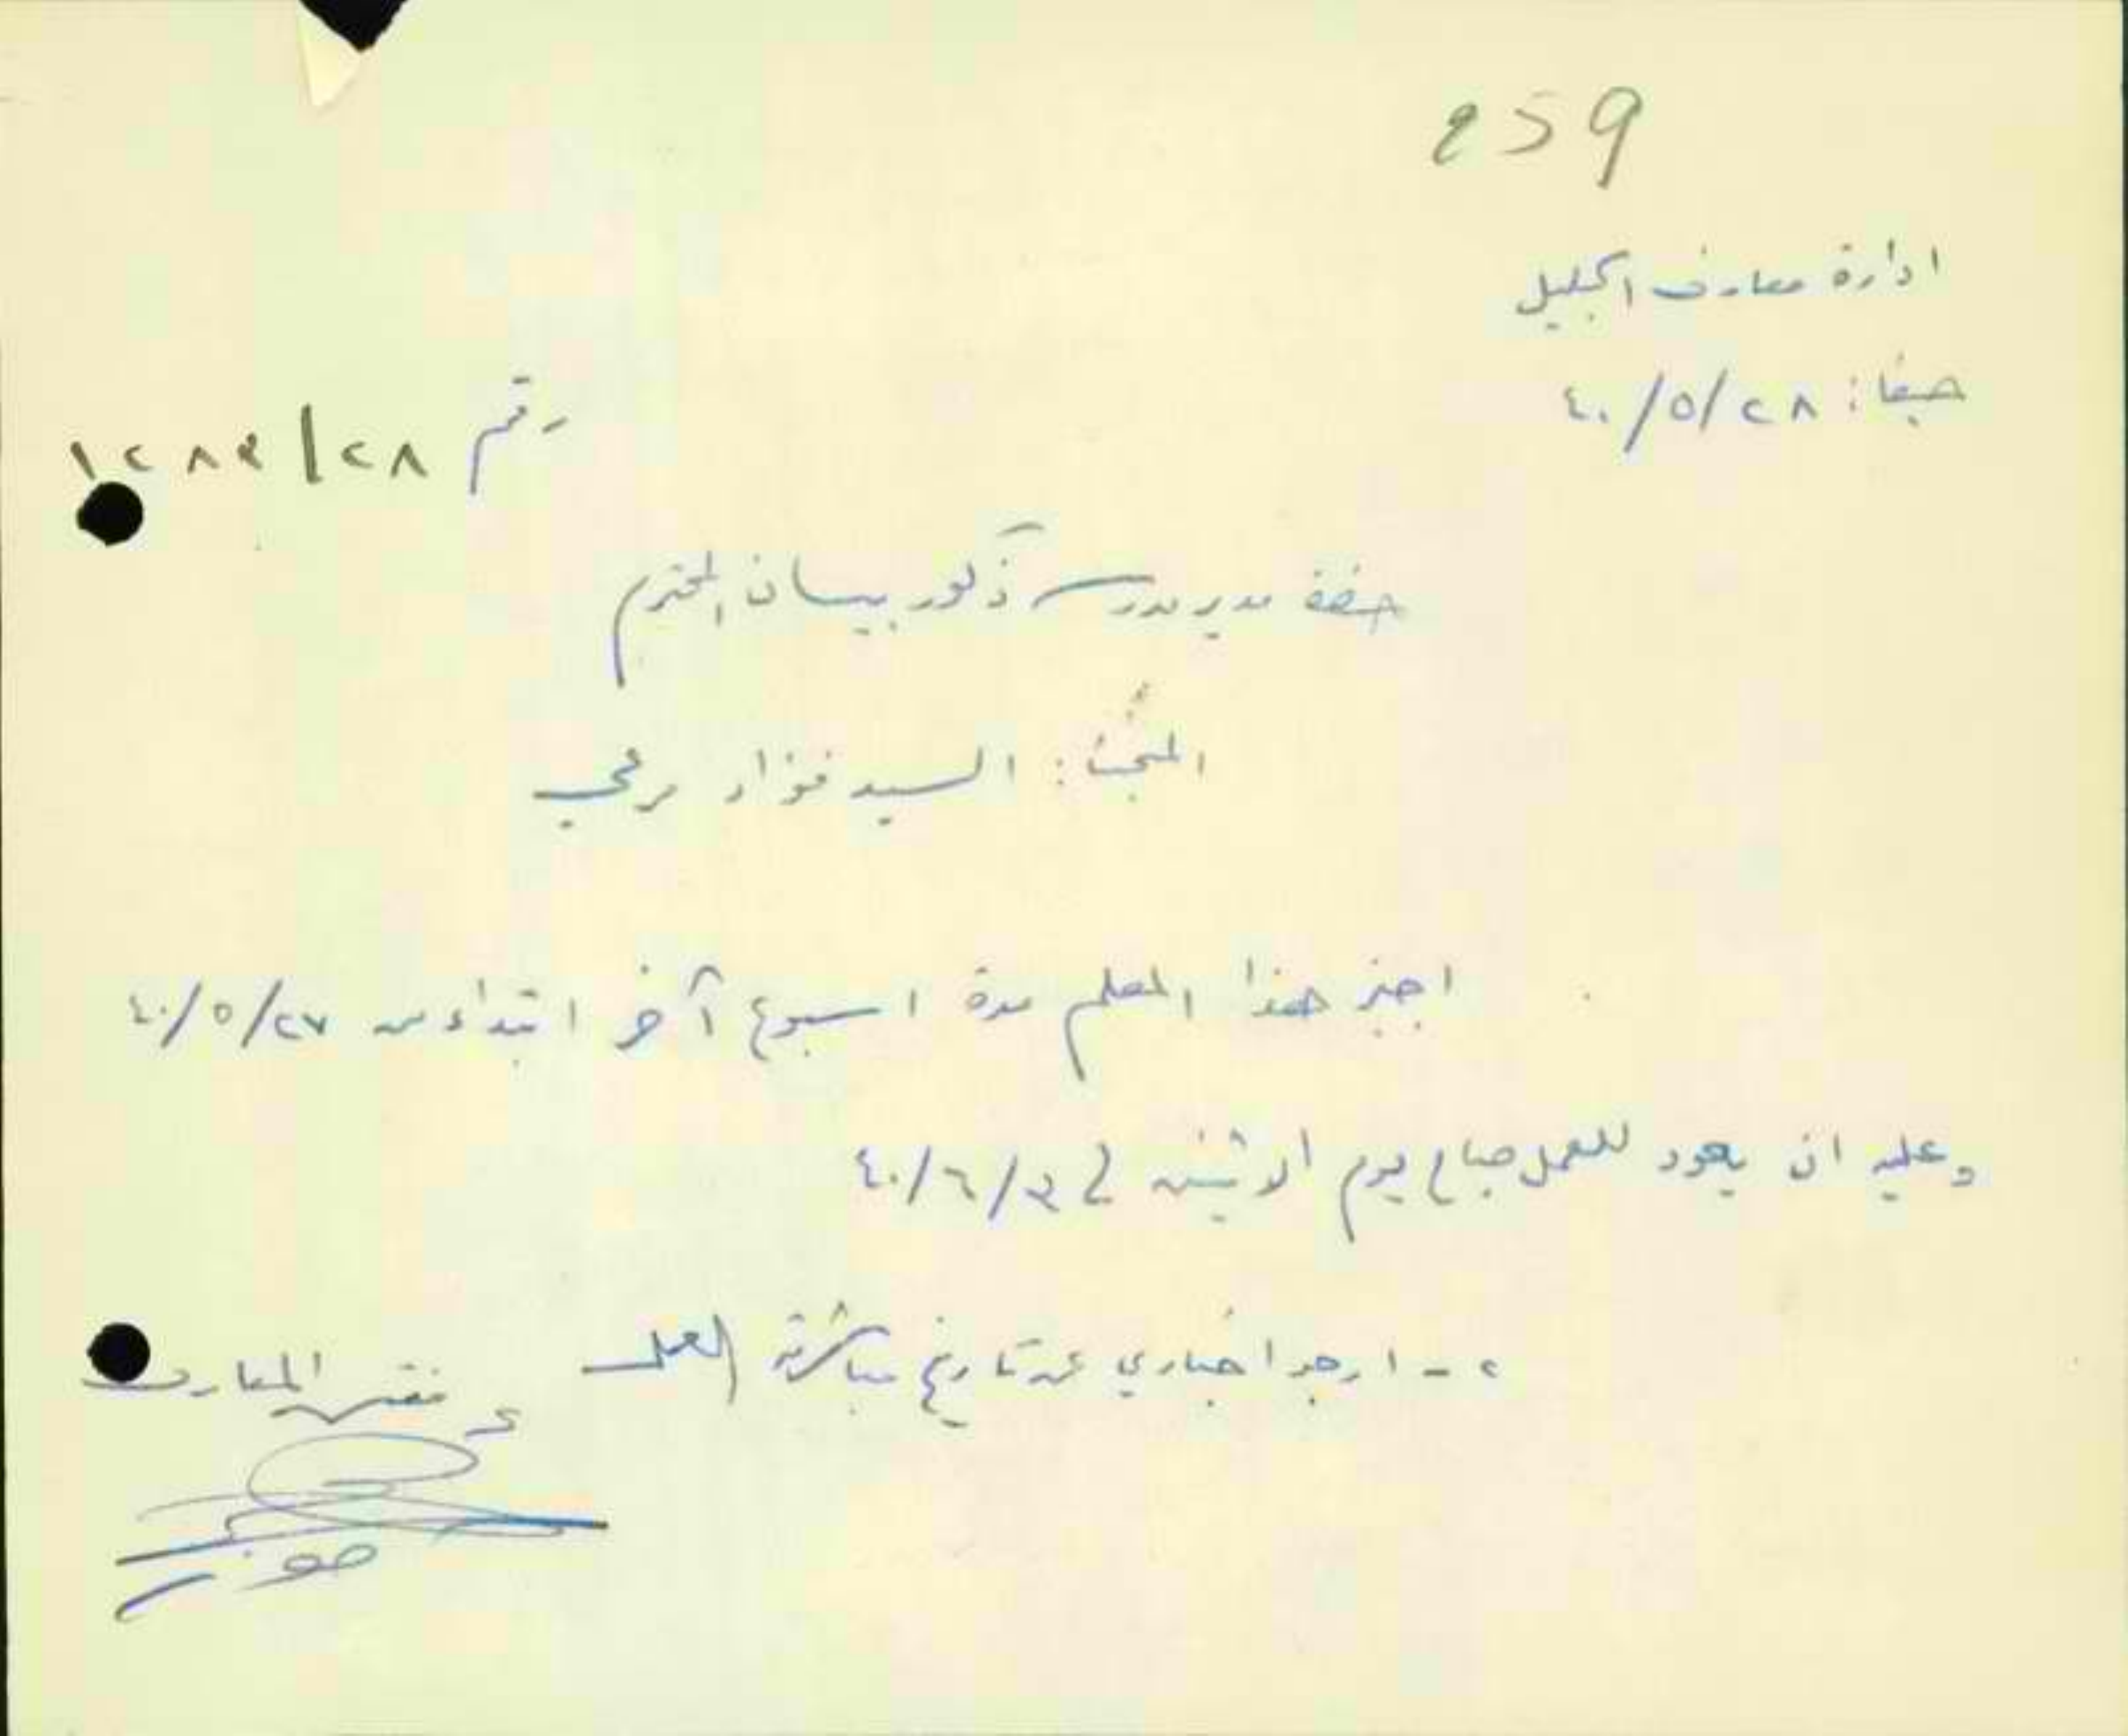 ٤٢٩
ادارة معارف الجليل
حيفا: ٢٨/٥/٤٠
رقم ٢٨/١٢٨٣
حضرة مدير مدرسة ذكور بيسان المحترم
المبحث: السيد فؤاد مرعي
اجيز هذا المعلم مدة اسبوع آخر ابتداء من ٢٧/٥/٤٠
وعليه ان يعود للعمل صباح يوم الاثنين في ٣/٦/٤٠
٢ - ارجو اخباري عن تاريخ مباشرته العمل
مفتش المعارف